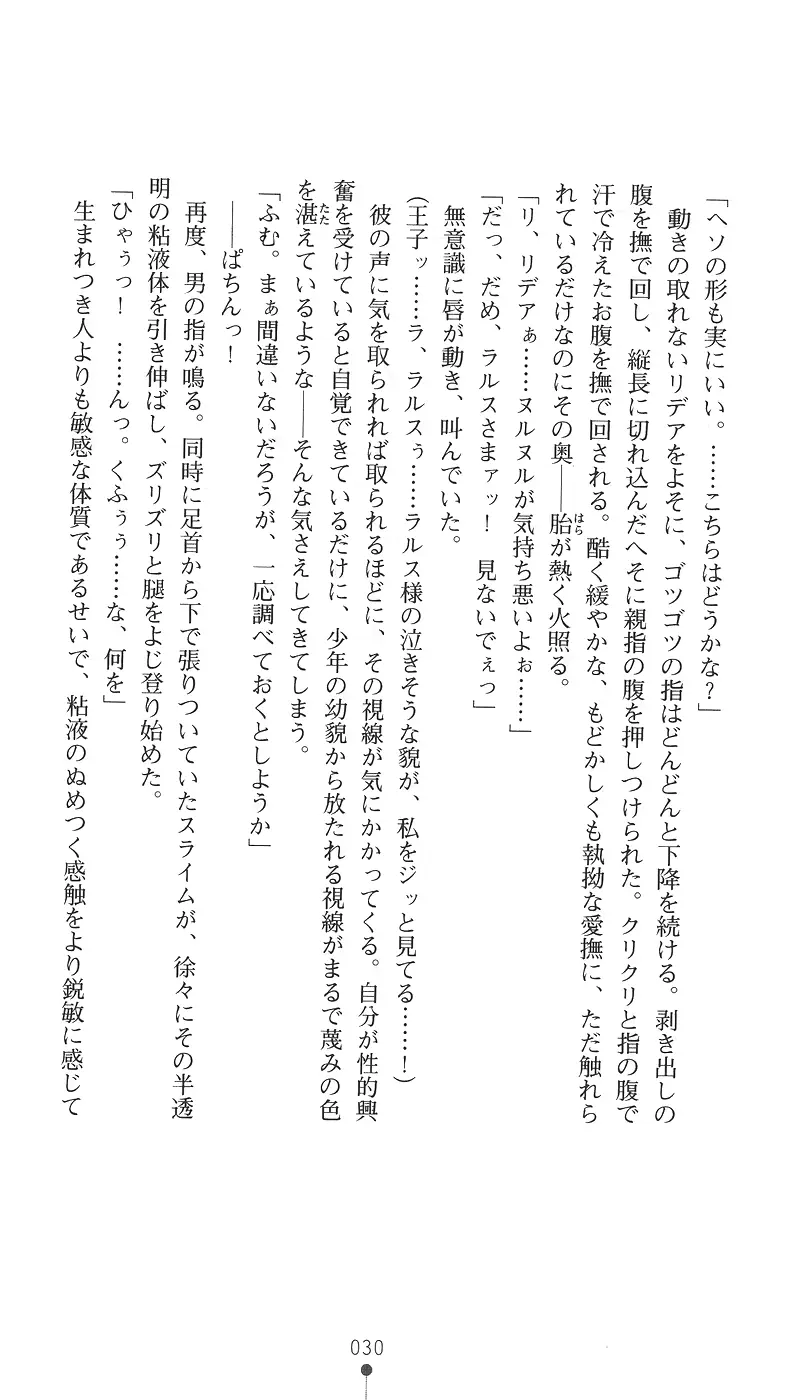 「ヘソの形も実にいい。……こちらはどうかな?」
動きの取れないリデアをよそに、ゴツゴツの指はどんどんと下降を続ける。剥き出しの
腹を撫で回し、縦長に切れ込んだへそに親指の腹を押しつけられた。クリクリと指の腹で
汗で冷えたお腹を撫で回される。酷く緩やかな、もどかしくも執拗な愛撫に、ただ触れら
れているだけなのにその奥――胎はらが熱く火照る。
「リ、リデアぁ……ヌルヌルが気持ち悪いよぉ……」
「だっ、だめ、ラルスさまァッ! 見ないでぇっ」
無意識に唇が動き、叫んでいた。
(王子ッ……ラ、ラルスぅ……ラルス様の泣きそうな貌が、私をジッと見てる……!)
彼の声に気を取られれば取られるほどに、その視線が気にかかってくる。自分が性的興
奮を受けていると自覚できているだけに、少年の幼貌から放たれる視線がまるで蔑みの色
を湛たたえているような――そんな気さえしてきてしまう。
「ふむ。まぁ間違いないだろうが、一応調べておくとしようか」
――ぱちんっ!
再度、男の指が鳴る。同時に足首から下で張りついていたスライムが、徐々にその半透
明の粘液体を引き伸ばし、ズリズリと腿をよじ登り始めた。
「ひゃぅっ! ……んっ。くふぅぅ……な、何を」
生まれつき人よりも敏感な体質であるせいで、粘液のぬめつく感触をより鋭敏に感じて
030